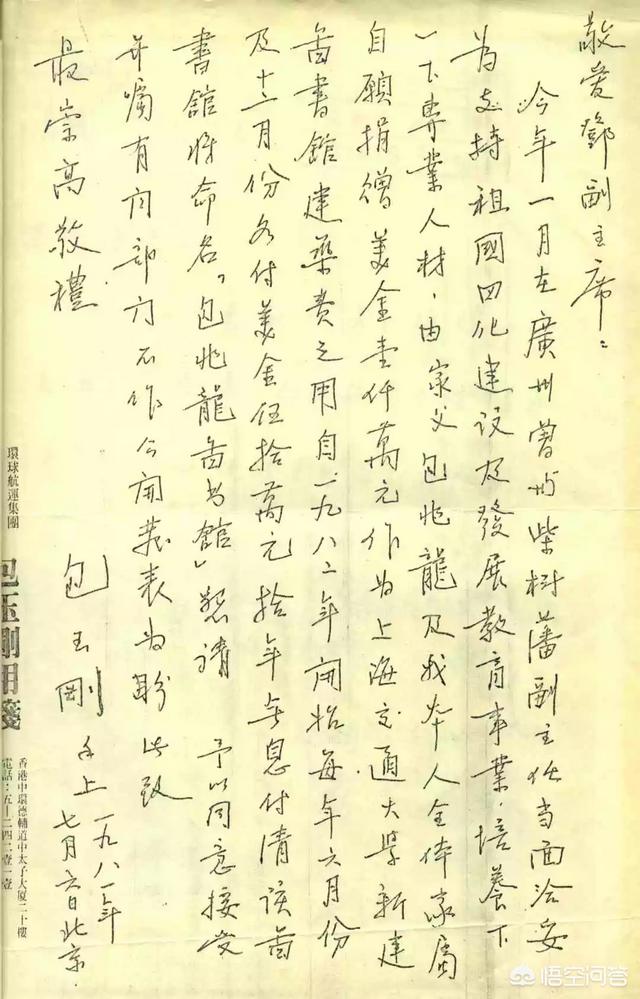 敬爱鄧副主席：
今年一月在廣州曾与柴树藩副主任当面洽妥
为支持祖國四化建设及發展教育事業，培養下
專業人材，由家父包兆龍及我本人全体家屬
自願捐贈美金壹仟萬元作为上海交通大學新建
啚書館建築費之用自一九八二年開始每年六月份
及十二月份各付美金伍拾萬元拾年無息付清该啚
書館将命名“包兆龍啚书館”懇请 予以同意接受
并嘱有関部门不作公開發表为盼此致
最崇高敬禮
包玉剛 手上
一九八一年
七月六日北京.
環球航運集團
包玉剛用箋
香港中環德輔道中太子大厦二十樓
電話：五—二四二壹一壹
悟空问答